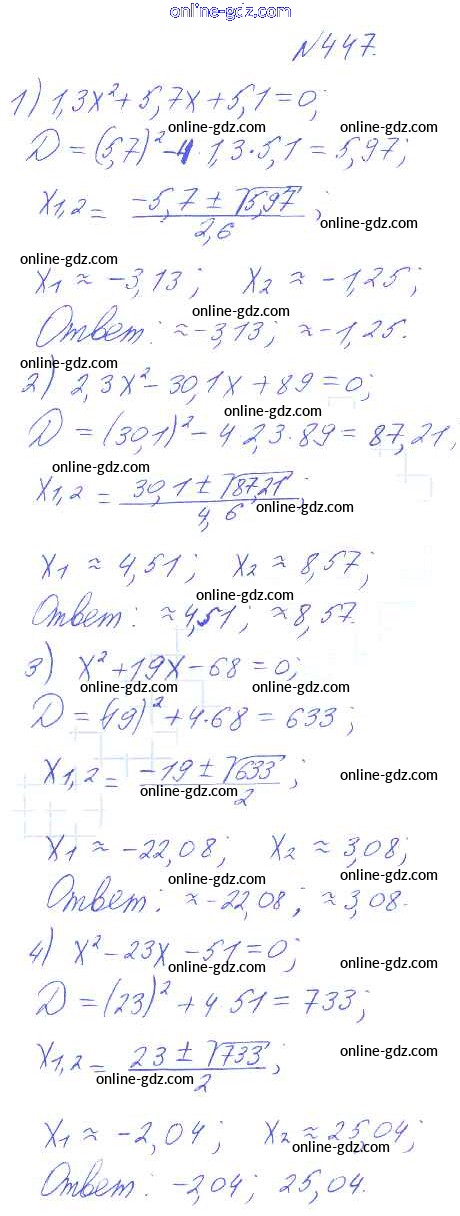 online-gdz.com
N447.
1) 1,3x² + 5,7x + 5,1 = 0;
online-gdz.com online-gdz.com
D = (5,7)² - 4 · 1,3 · 5,1 = 5,97;
online-gdz.com
x1,2 = (-5,7 ± √5,97) / 2,6;
online-gdz.com
online-gdz.com
x1 ≈ -3,13; x2 ≈ -1,25;
online-gdz.com
Ответ: ≈ -3,13; ≈ -1,25.
online-gdz.com
2) 2,3x² - 30,1x + 89 = 0;
online-gdz.com
D = (30,1)² - 4 2,3 · 89 = 87,21;
online-gdz.com
x1,2 = (30,1 ± √87,21) / 4,6;
online-gdz.com
x1 ≈ 4,51; x2 ≈ 8,57;
online-gdz.com
Ответ: ≈ 4,51; ≈ 8,57.
online-gdz.com
3) x² + 19x - 68 = 0;
online-gdz.com online-gdz.com
D = (19)² + 4 · 68 = 633;
x1,2 = (-19 ± √633) / 2;
online-gdz.com
online-gdz.com
x1 ≈ -22,08; x2 ≈ 3,08;
online-gdz.com
Ответ: ≈ -22,08; ≈ 3,08.
online-gdz.com
4) x² - 23x - 51 = 0;
online-gdz.com online-gdz.com
D = (23)² + 4 · 51 = 733;
x1,2 = (23 ± √733) / 2;
online-gdz.com
online-gdz.com
x1 ≈ -2,04; x2 ≈ 25,04;
online-gdz.com
Ответ: -2,04; 25,04.
online-gdz.com